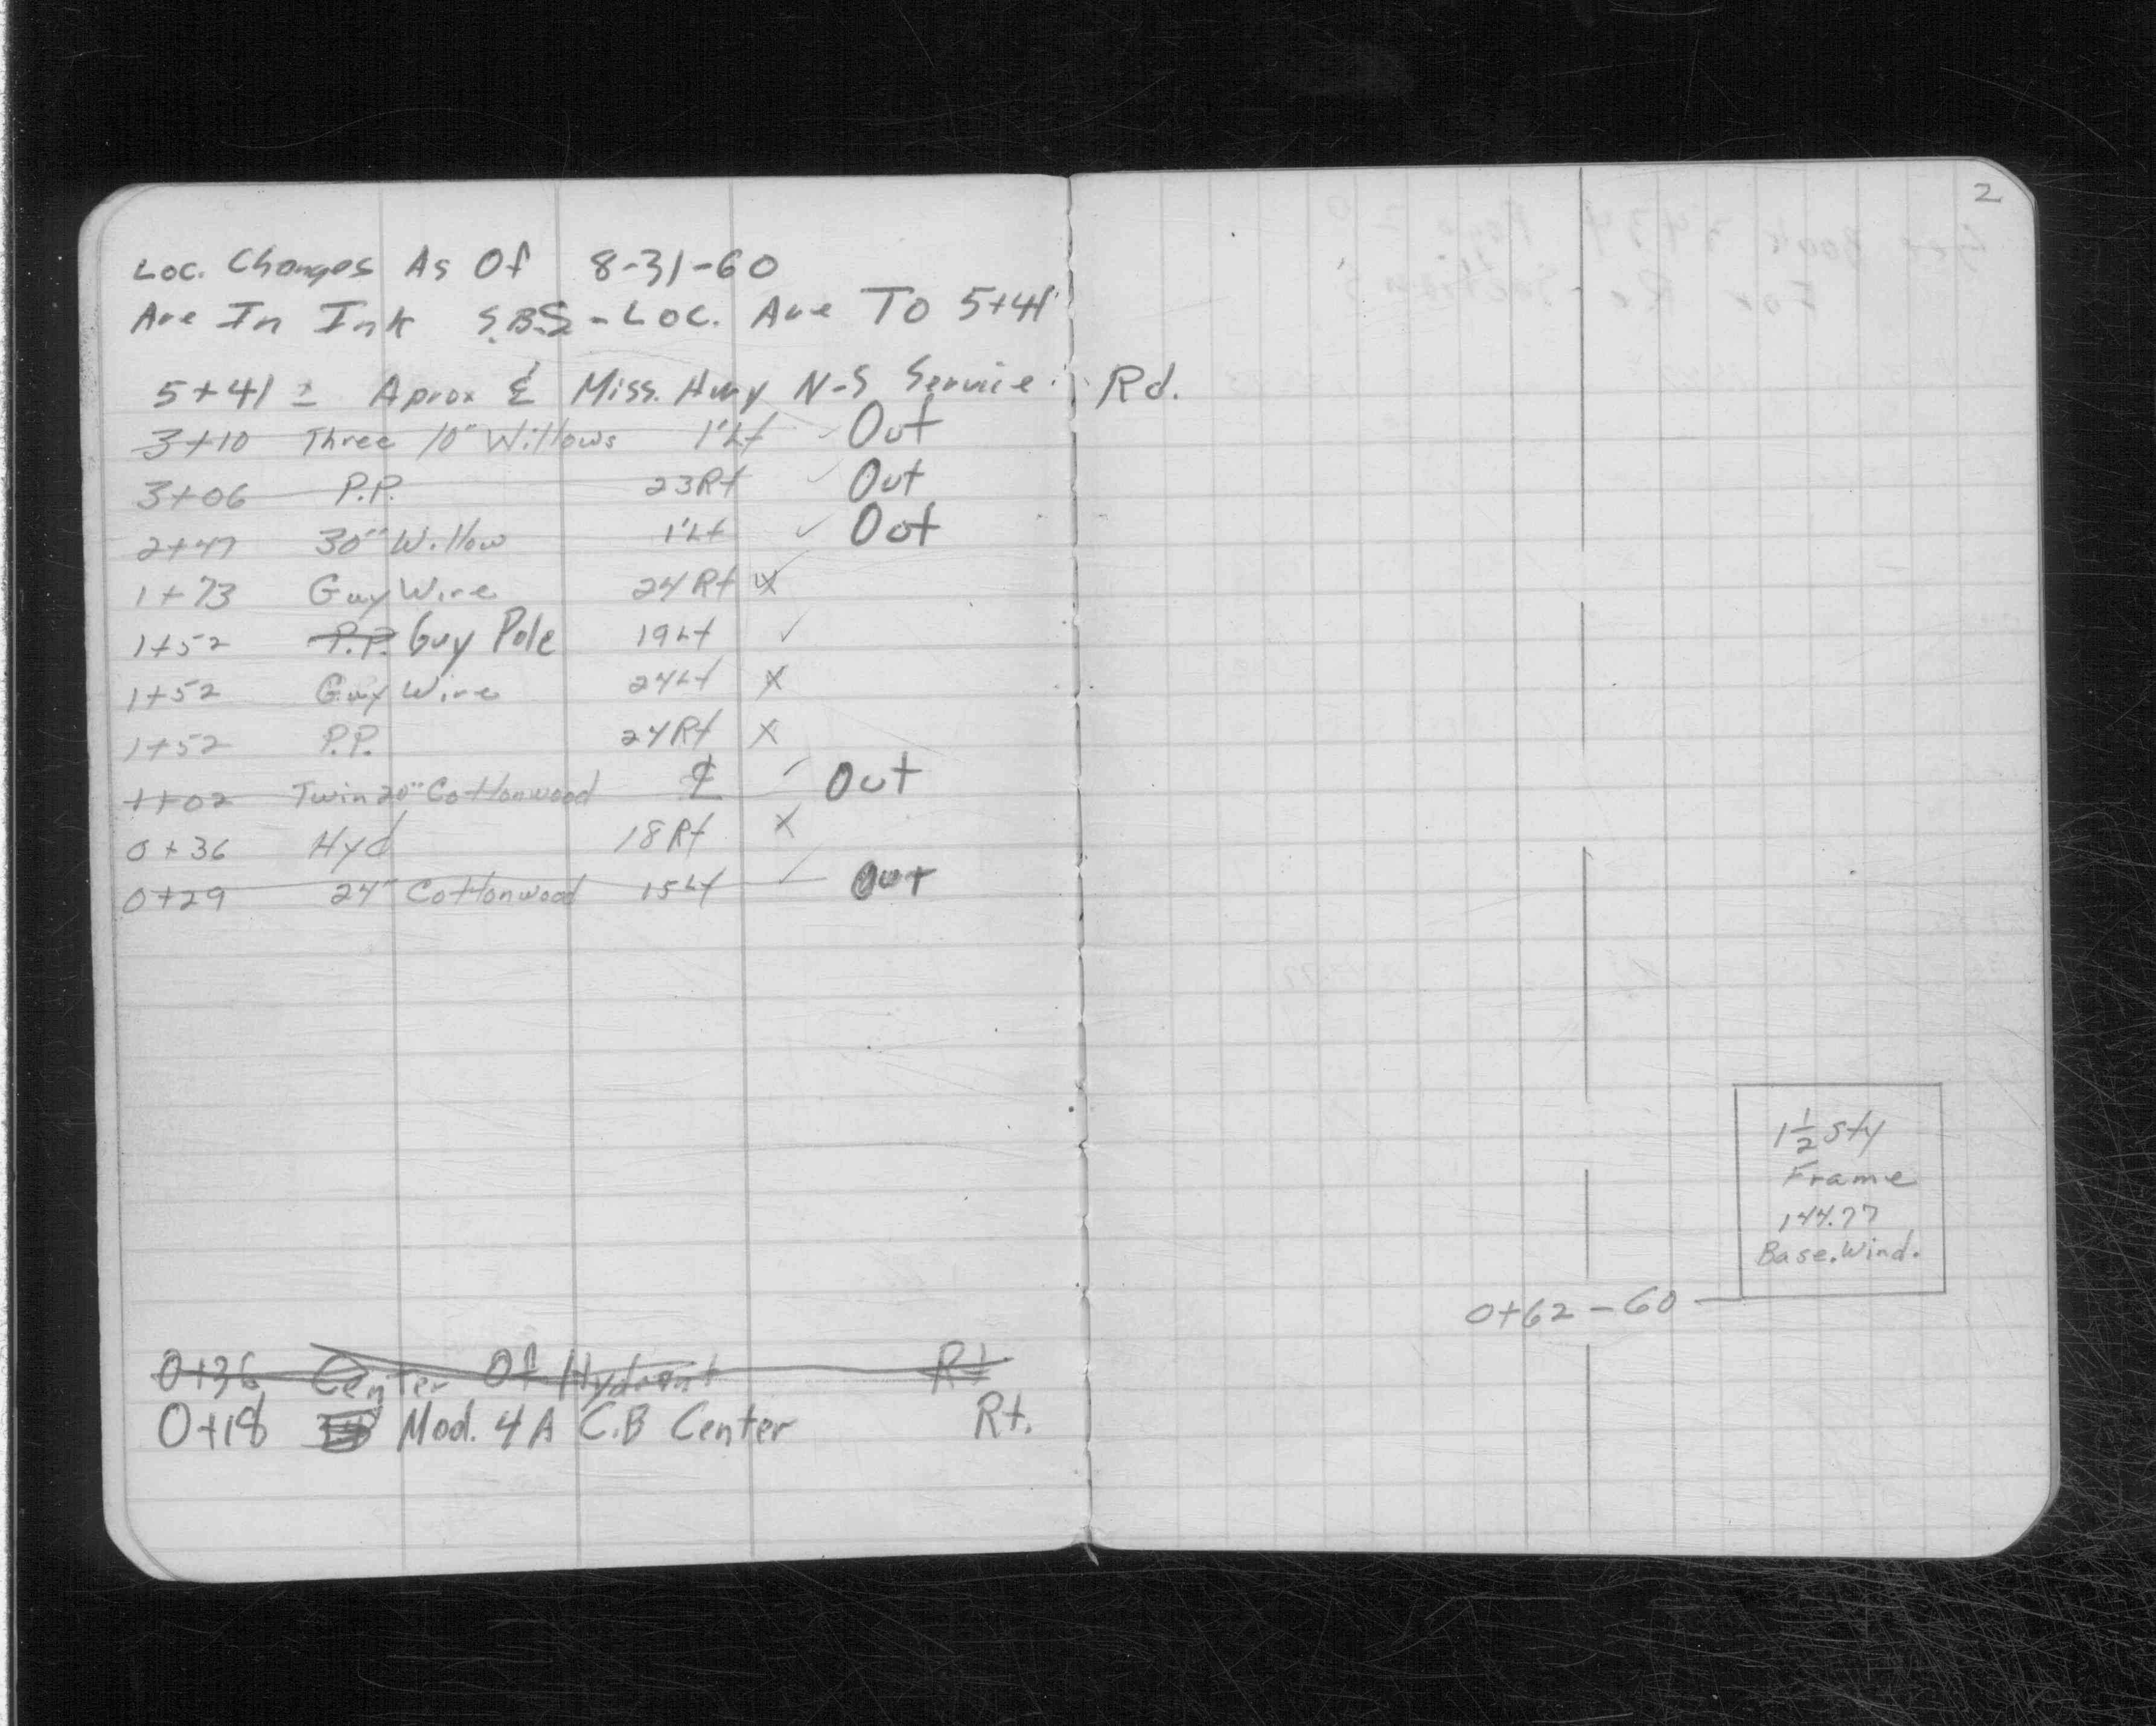 2
Loc. Changes As Of 8-31-60
Are In Ink S.B.S - Loc. Are To 5+41
5+41 ± Aprox ℄ Miss. Hwy N-S Service Rd.
3+10 Three 10" Willows 1'Lt ✓ Out
3+06 P.P. 23Rt ✓ Out
2+47 30" Willow 1'Lt ✓ Out
1+73 Guy Wire 24Rt X ✓
1+52 P.P. Guy Pole 19Lt ✓
1+52 Guy Wire 24Lt X
1+52 P.P. 24Rt X
1+02 Twin 20" Cottonwood ℄ ✓ Out
0+36 Hyd 18Rt X
0+29 24" Cottonwood 15Lt ✓ Out
0+36 Center Of Hydrant Rt
0+18 Mod. 4A C.B Center Rt.
1½ Sty
Frame
144.77
Base.Wind.
0+62-60